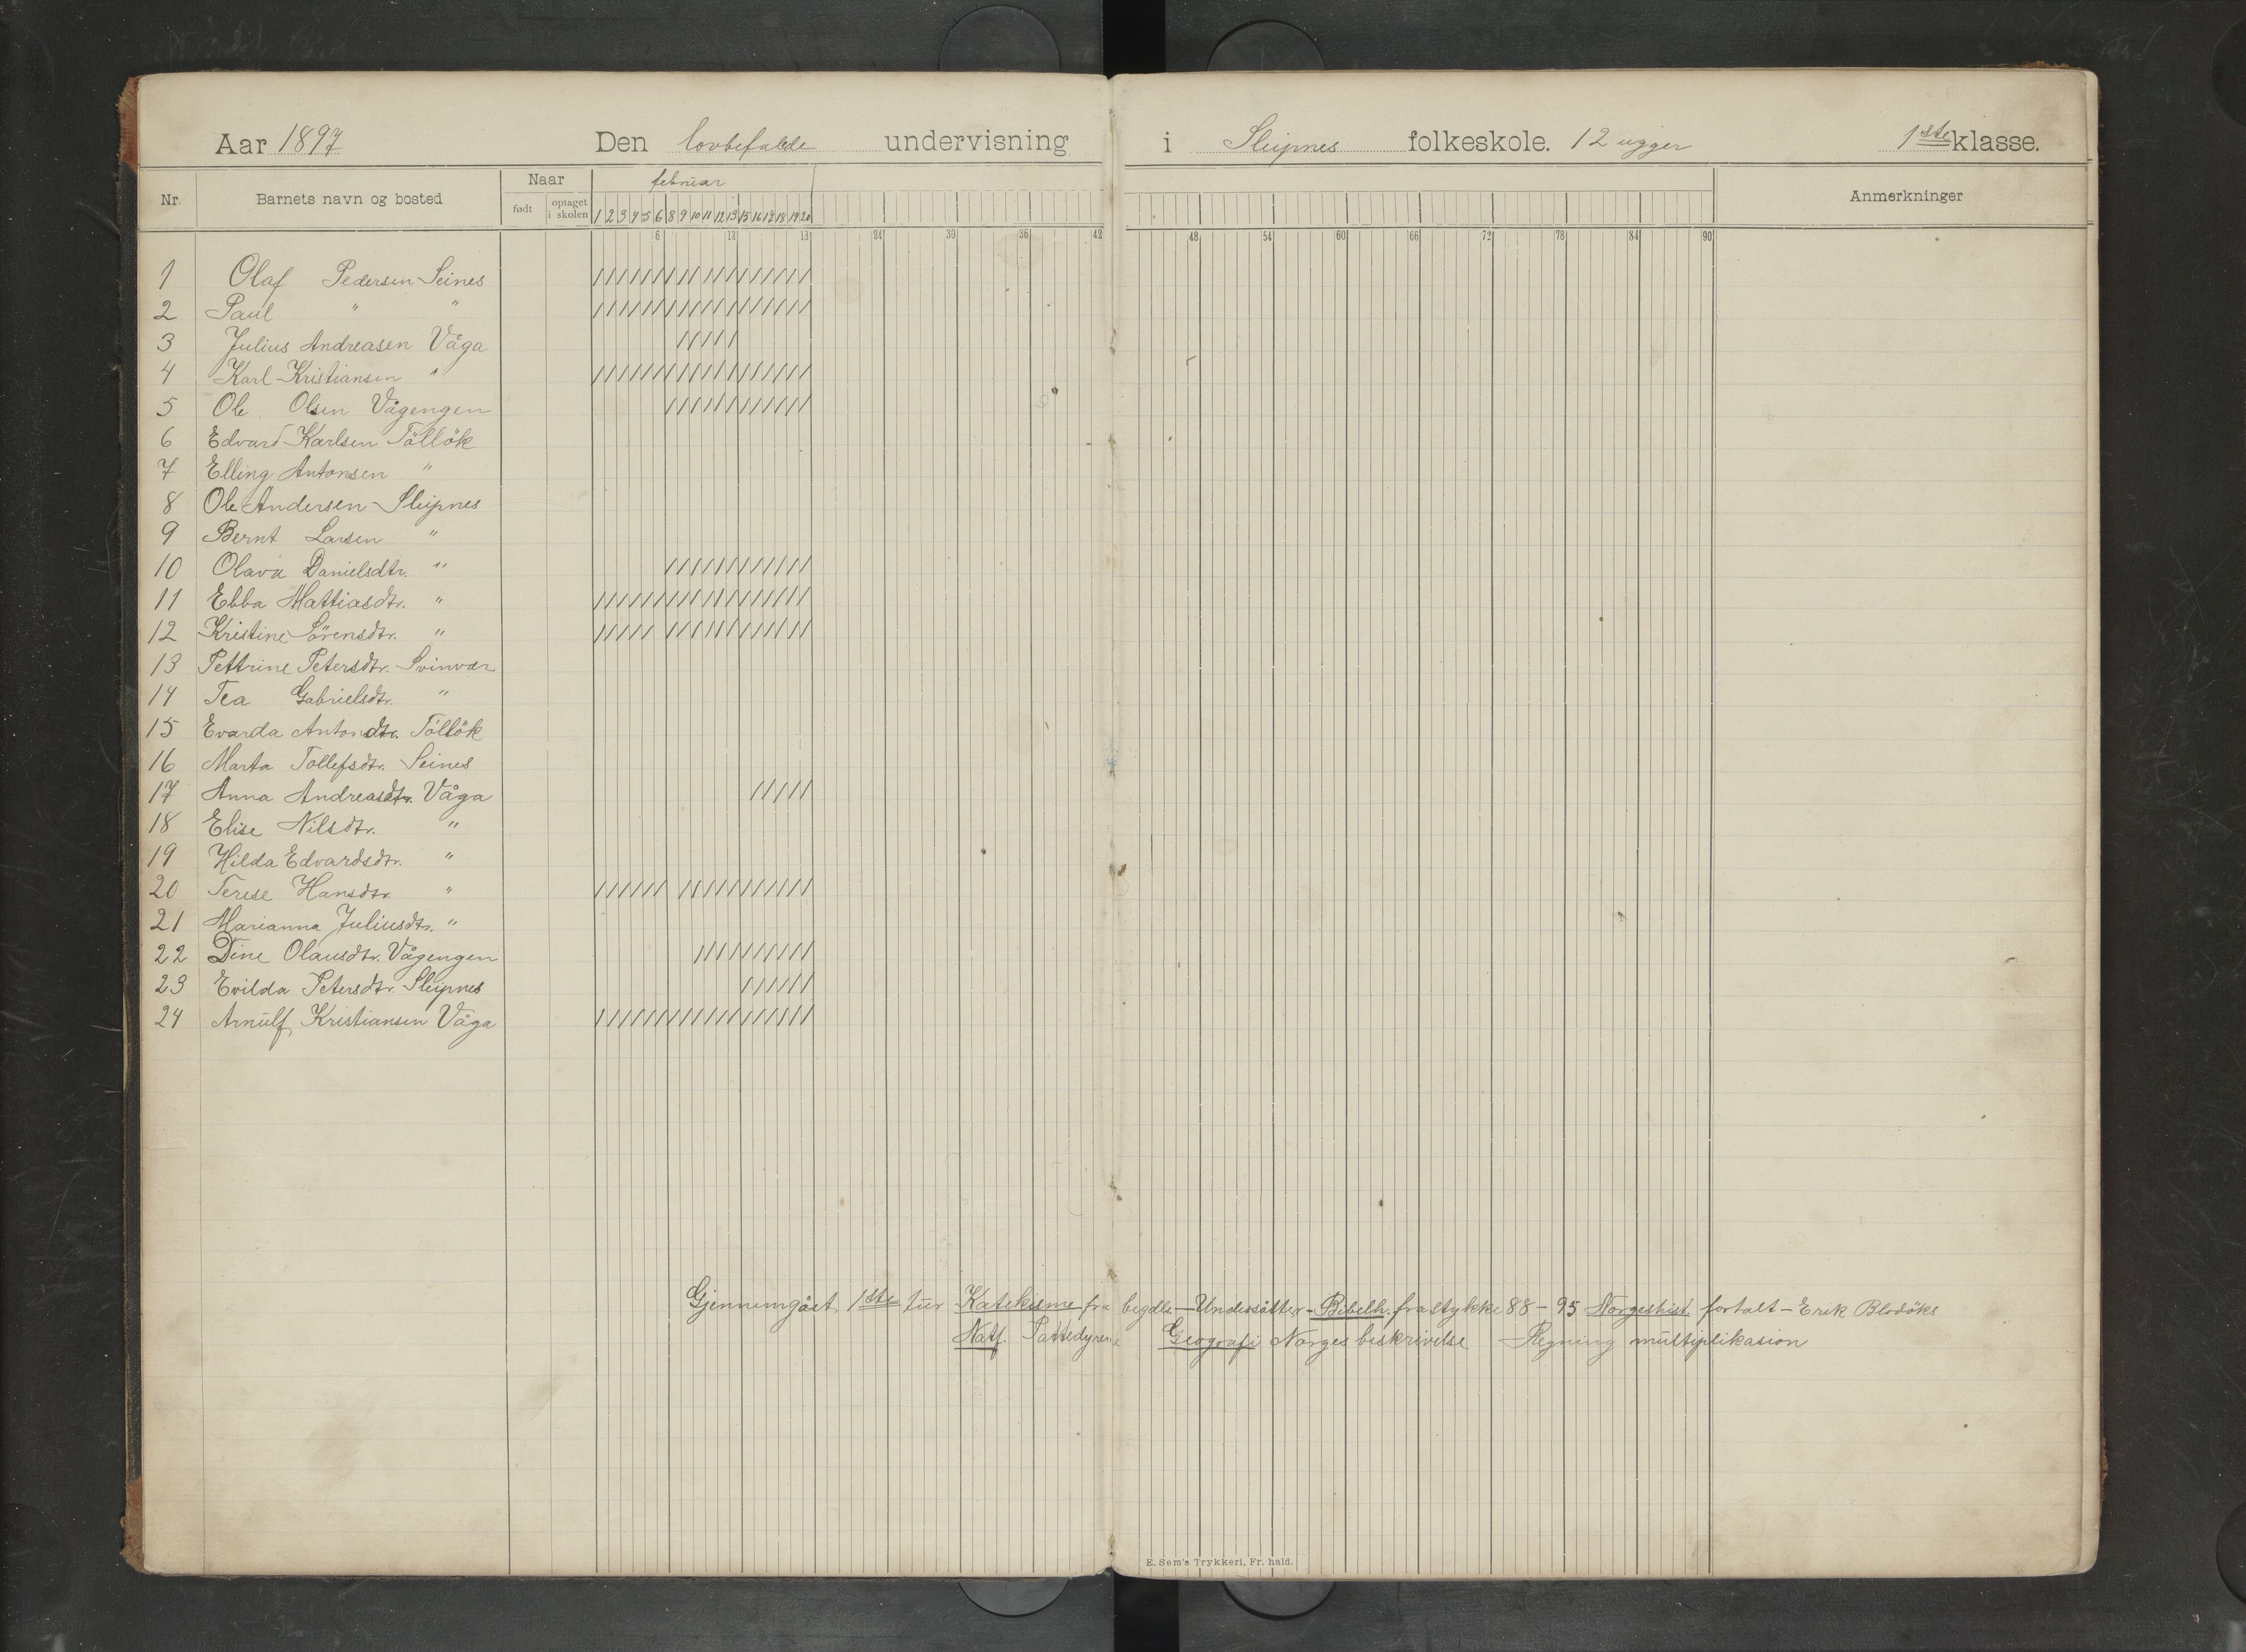 Aar 1897 Den lovbefalede undervisning i Sleipnes folkeskole. 12 ugger 1ste klasse.
Nr. Barnets navn og bosted Naar februar Anmerkninger
født optaget i skolen 1 2 3 4 5 6 8 9 10 11 12 13 15 16 17 18 19 20
6 12 13 24 30 36 42 48 54 60 66 72 78 84 90
1 Olaf Pedersen Seines //////////////////
2 Paul " " //////////////////
3 Julius Andreasen Våga /////
4 Karl Kristiansen " //////////////////
5 Ole Olsen Vågengen ////////////
6 Edvard Karlsen Töllök
7 Elling Antonsen "
8 Ole Andersen Sleipnes
9 Bernt Larsen "
10 Olava Danielsdtr. " ////////////
11 Ebba Mattiasdtr. " //////////////////
12 Kristine Sörensdtr. " ///// ////////////
13 Pettrine Petersdtr. Svinvær
14 Tea Gabrielsdtr. "
15 Evarda Antondtr. Töllök
16 Marta Tollefsdtr. Seines
17 Anna Andreasdtr. Våga /////
18 Elise Nilsdtr. "
19 Hilda Edvardsdtr. "
20 Terese Hansdtr. " ////// ///////////
21 Marianna Juliusdtr. "
22 Dine Olausdtr. Vågengen //////////
23 Evilda Petersdtr. Sleipnes //////
24 Arnulf Kristiansen Våga //////////////////
Gjennemgået 1ste tur Katekisme fra begdls – Undersåtter – Bibelh. fra stykke 88 – 95 Norgeshist. fortalt – Erik Blodöks
Natf. Pattedyrene Geografi Norges beskrivelse Regning multiplikasion
E. Sem's Trykkeri, Fr. hald.